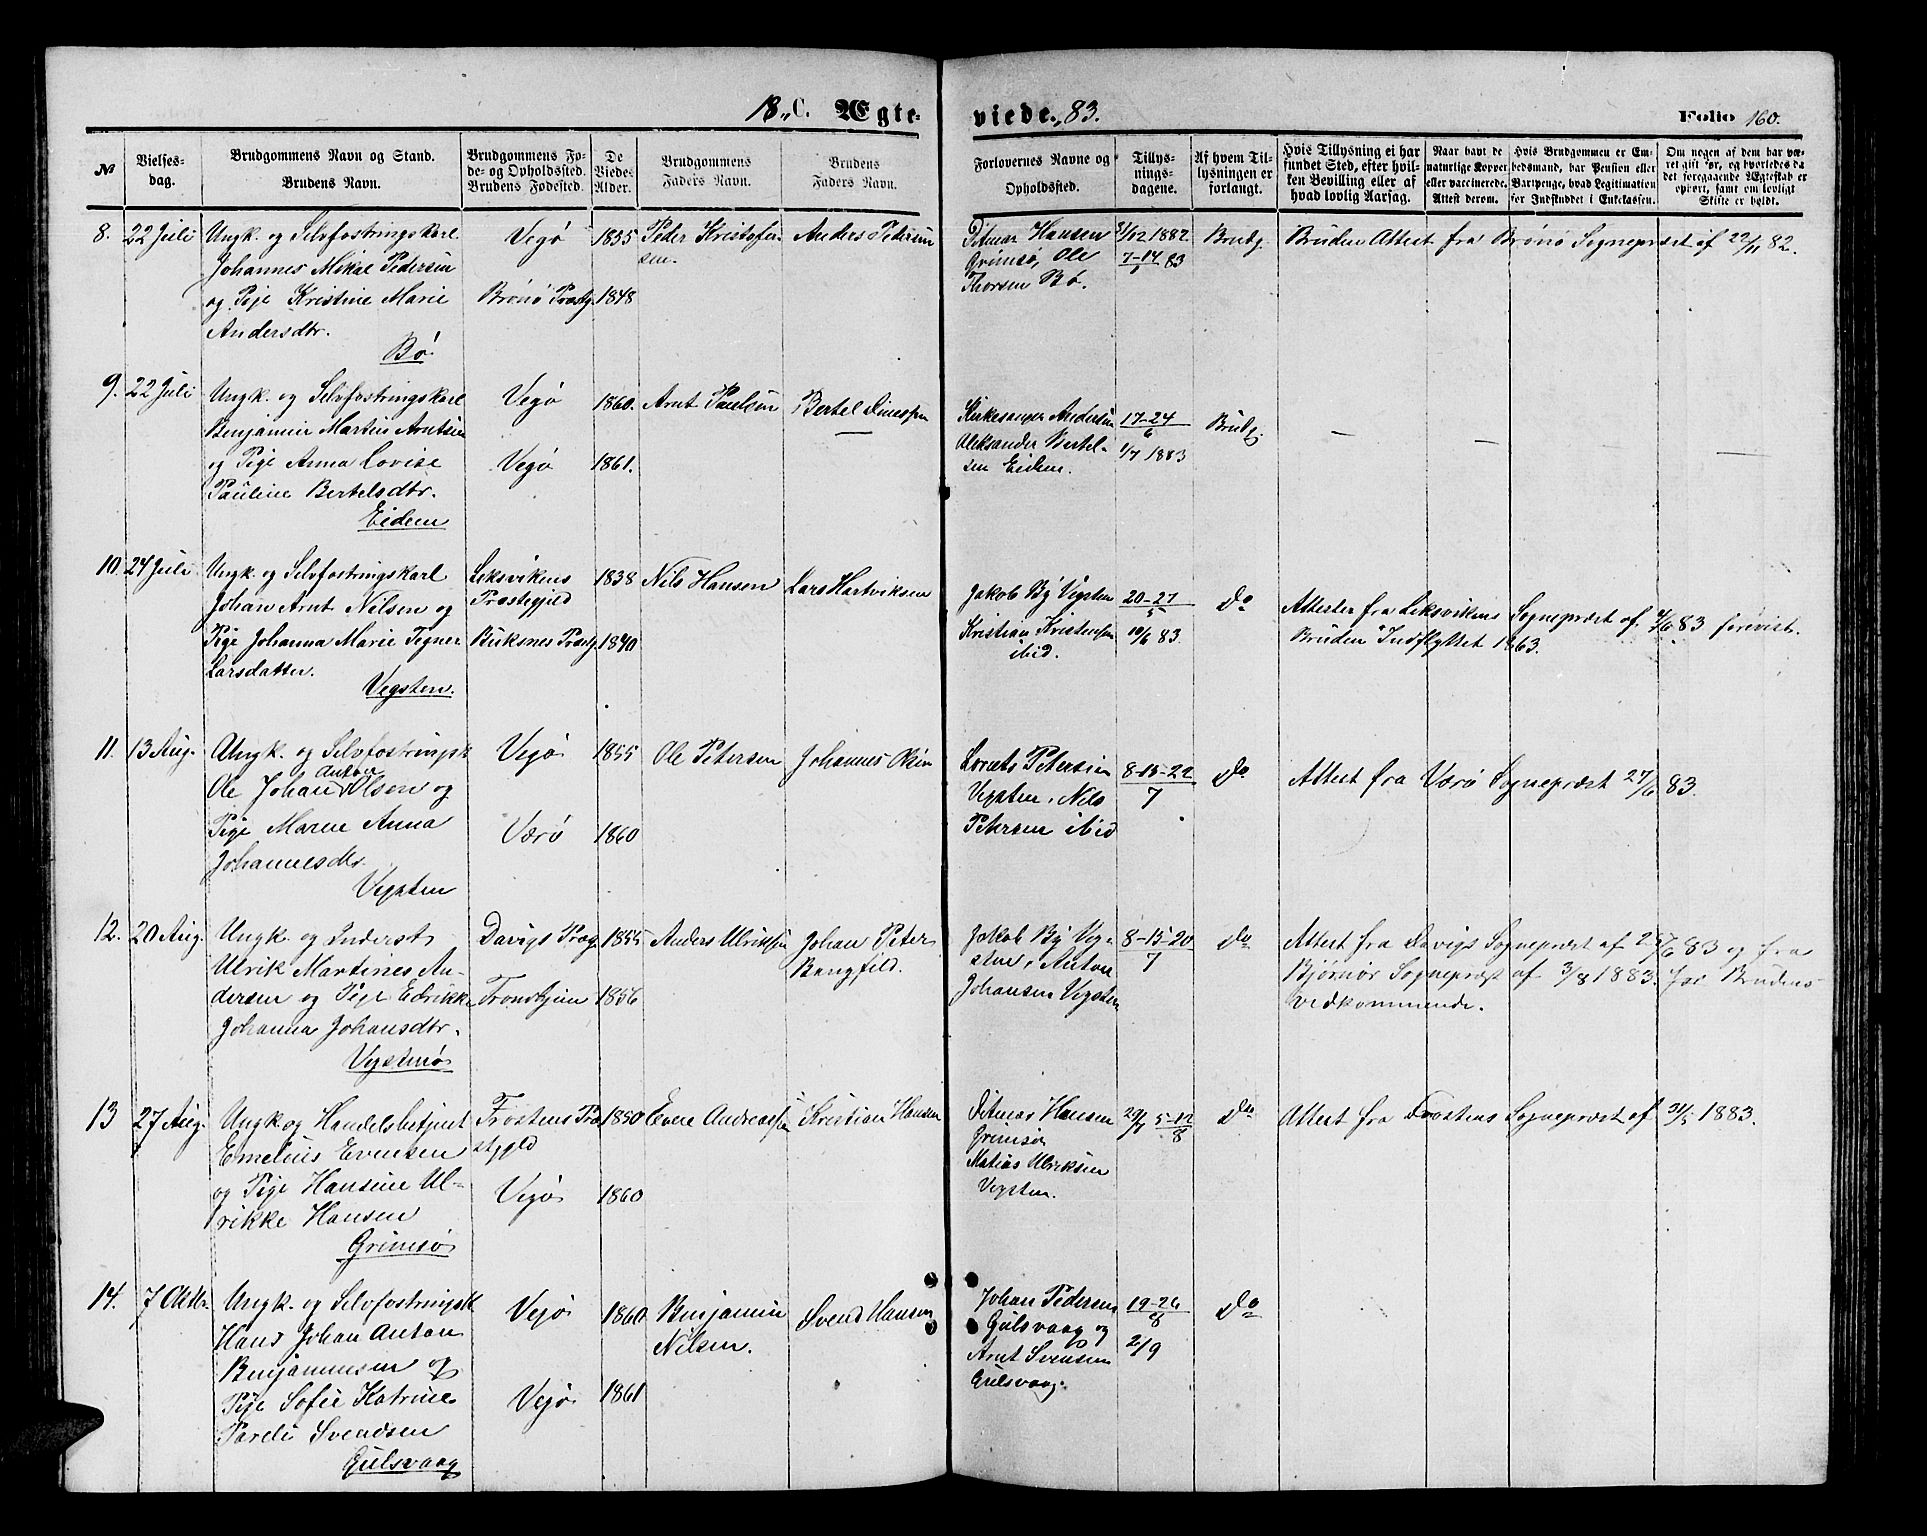 18 C. Ægteviede. 83. Folio 160.
№
Vielses-
dag.
Brudgommens Navn og Stand.
Brudens Navn.
Brudgommens Fø-
de- og Opholdssted.
Brudens Fødested.
De
Viedes
Alder.
Brudgommens
Faders Navn.
Brudens
Faders Navn.
Forlovernes Navne og
Opholdssted.
Tillys-
nings-
dagene.
Af hvem Til-
lysningen er
forlangt.
Hvis Tillysning ei har
fundet Sted, efter hvil-
ken Bevilling eller af
hvad lovlig Aarsag.
Naar havt de
naturlige Kopper
eller vaccinerede.
Attest derom.
Hvis Brudgommen er Em-
bedsmand, har Pension eller
Vartpenge, hvad Legitimation
for Indskuddet i Enkekassen.
Om nogen af dem har væ-
ret gift før, og hvorledes da
det foregaaende Ægteskab er
ophørt, samt om lovligt
Skifte er holdt.
8. 22 Juli
Ungk. og Selvfostringskarl
Johannes Mikal Pedersen
og Pige Kristine Marie
Andersdtr.
Bø
Vegø
Brønø Præstg.
1855
1848
Peder Kristofer-
sen.
Anders Pedersen
Ditmar Hansen
Grimsø, Ole
Thorsen Bø.
31/12 1882
7-14/1 83
Brudg.
Bruden Attest fra Brønø Sognepræst af 22/11 82.
9. 22 Juli
Ungk. og Selvfostringskarl
Benjamin Martin Arntsen
og Pige Anna Lovise
Pauline Bertelsdtr.
Eidem
Vegø
Vegø
1860.
1861.
Arnt Paulsen
Bertel Dinessen
Kirkesanger Andersen
Aleksander Bertel-
sen Eidem.
17-24/6
1/7 1883
Brudg.
10. 24 Juli
Ungk. og Selvfostringskarl
Johan Arnt Nilsen og
Pige Johanna Marie Tegner
Larsdatter.
Vegsten.
Leksvikens
Præstegjeld
Buksnes Præstg.
1838
1840
Nils Hansen
Lars Hartviksen
Jakob By Vegsten
Kristian Kristensen
ibid.
20-27/5
10/6 83.
Do
Attester fra Leksvikens Sognepræst af 4/6 83 forevist.
Bruden Indflyttet 1863.
11. 13 Aug.
Ungk. og Selvfostringsk
Ole Johan Anton Olsen og
Pige Maren Anna
Johannesdtr
Vegsten
Vegø
Værø
1855
1860
Ole Petersen
Johannes
Lornts Petersen
Vegsten, Nils
Petersen ibid
8-15-22/7
Do
Attest fra Værø Sognepræst 27/6 83.
12. 20 Aug.
Ungk. og Inderst
Ulrik Martines An-
dersen og Pige Edrikke
Johanna Johansdtr.
Vegstenø
Davigs Præg.
Trondhjem
1855
1856
Anders Ulriksen
Johan Peter
Bangfild.
Jakob By Veg-
sten, Anton
Johansen Vegsten
8-15-20/7
Do
Attest fra Davigs Sognepræst af 25/6 83 og fra
Bjørnør Sognepræst af 3/8 1883. for Brudens
vedkommende.
13 27 Aug.
Ungk og Handelsbetjent
Emelius Evensen
og Pige Hansine Ul-
rikke Hansen
Grimsø
Frostens Præ
stgjeld
Vegø
1850
1860
Even Andreassen
Kristian Hansen
Ditmar Hansen
Grimsø
Matias Ulriksen
Vegsten.
29/7 5-12/8
Do
Attest fra Frostens Sognepræst af 31/5 1883.
14. 7 Oktbr.
Ungk. og Selvfostringsk
Hans Johan Anton
Benjaminsen og
Pige Sofie Katrine
Parelie Svendsen
Gulsvaag
Vegø
Vegø
1860
1861
Benjamin
Nilsen.
Svend Hansen
Johan Pedersen
Gulsvaag og
Arnt Svensen
Gulsvaag.
19-26/8
2/9
Do